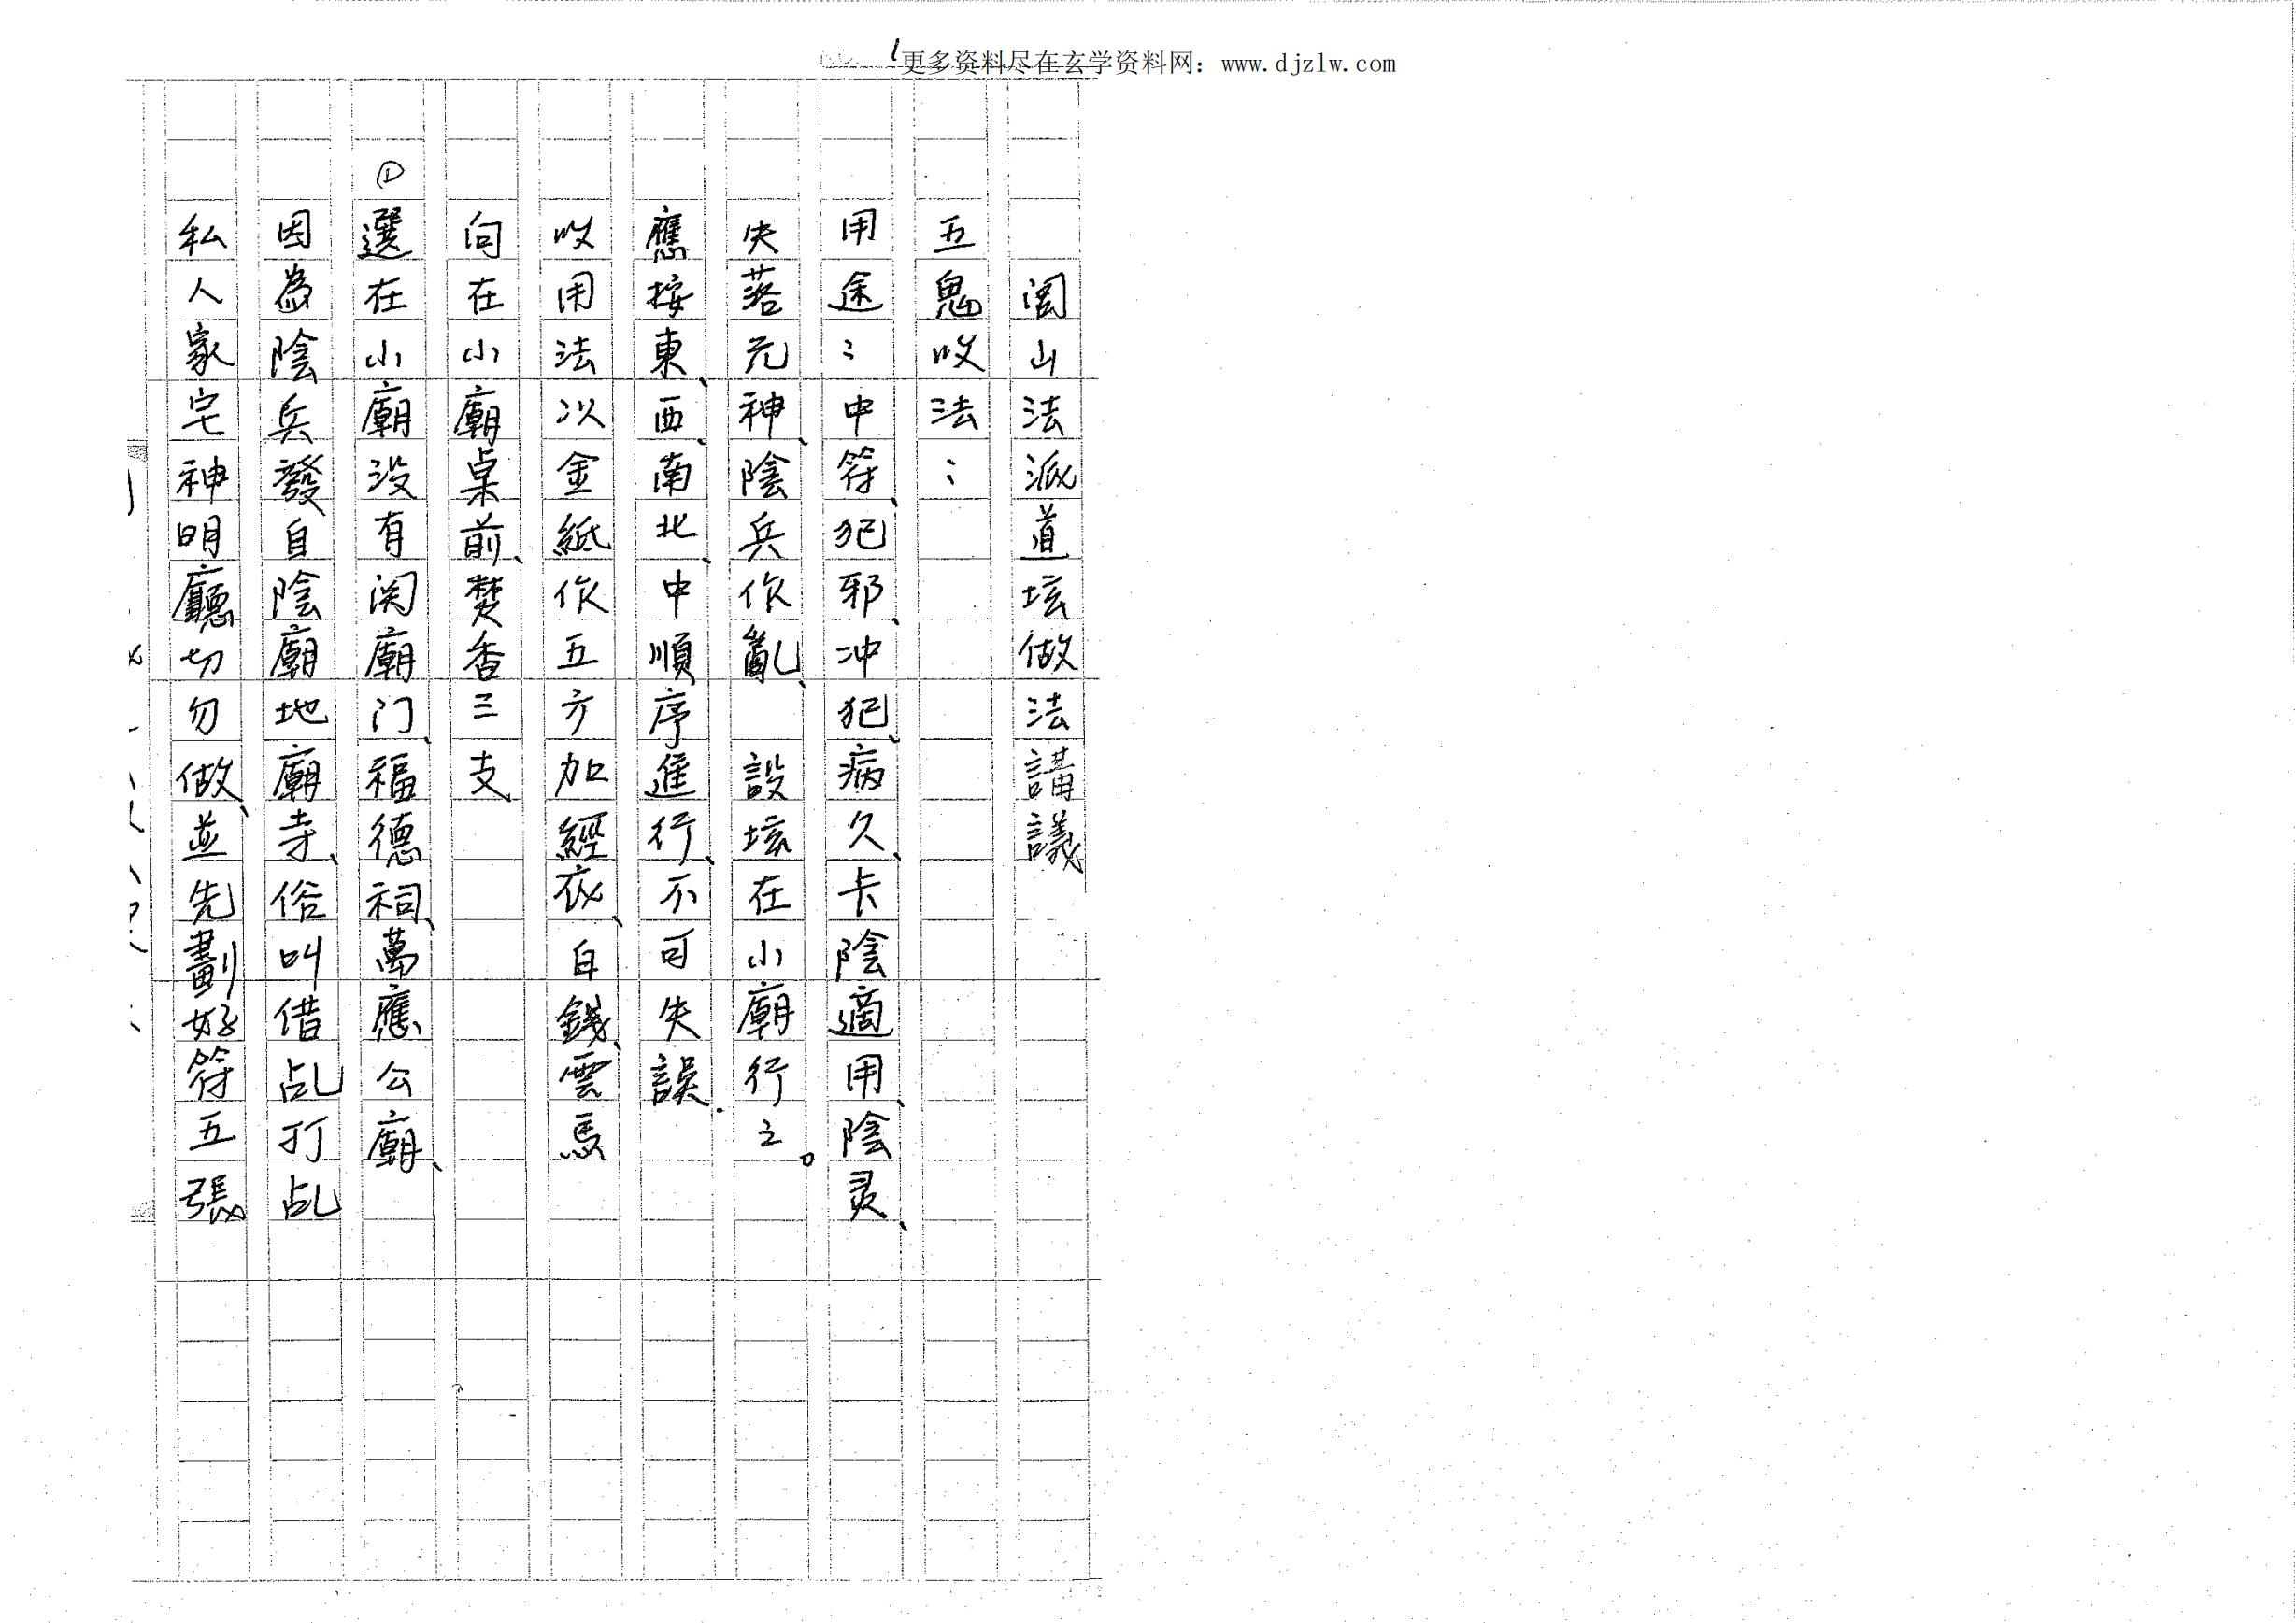 更多资料尽在玄学资料网：www.djzlw.com
闾山法派道坛做法講議
五鬼收法：
用途：中符、犯邪、冲犯、病久、卡陰適用、陰灵、
失落元神、陰兵作亂、設坛在小廟行之。
應按東、西、南、北、中順序進行、不可失誤.
收用法以金紙作五方加經衣、白錢、雲馬
向在小廟桌前、焚香三支
①選在小廟没有関廟门、福德祠、萬應公廟、
因為陰兵發自陰廟地廟寺、俗叫借乩打乩
私人家宅神明廳切勿做、並先劃好符五張